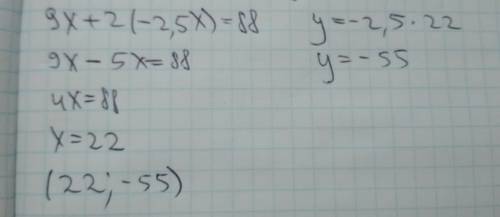 9x+2(-2,5x)=88
9x-5x=88
4x=88
x=22
(22;-55)
y=-2,5·22
y=-55